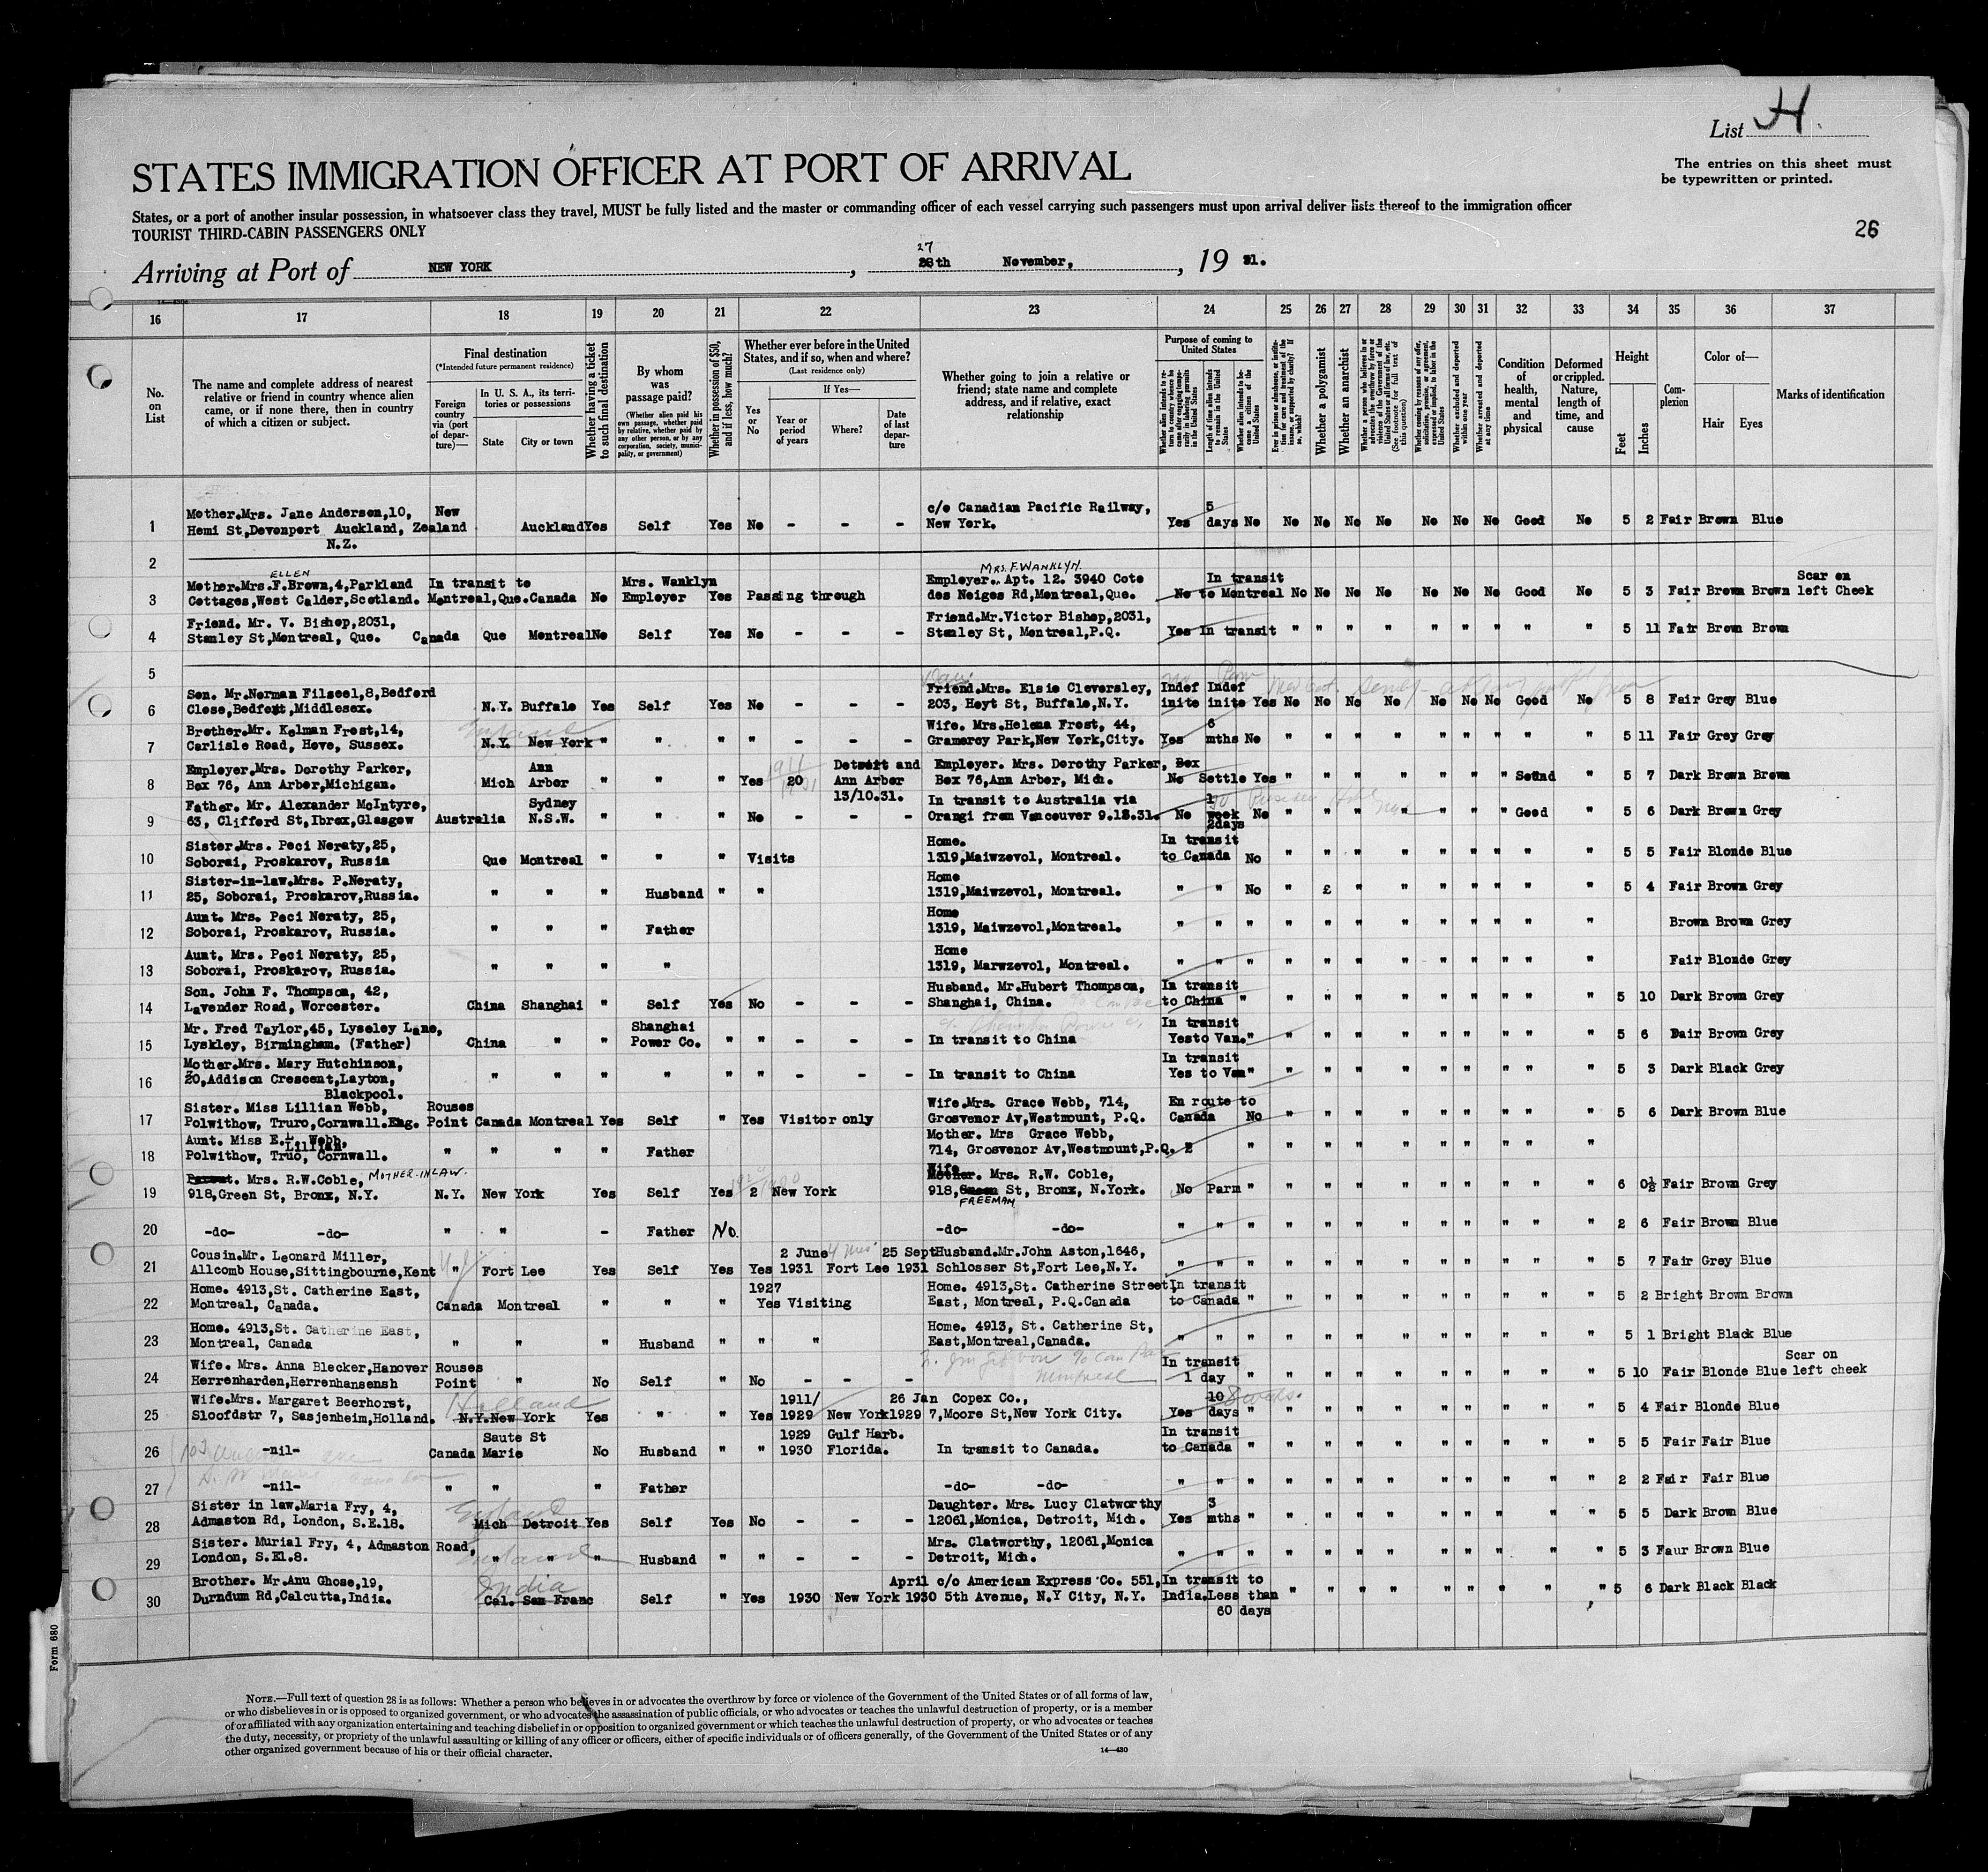 List H.
STATES IMMIGRATION OFFICER AT PORT OF ARRIVAL
The entries on this sheet must
be typewritten or printed.
States, or a port of another insular possession, in whatsoever class they travel, MUST be fully listed and the master or commanding officer of each vessel carrying such passengers must upon arrival deliver lists thereof to the immigration officer
TOURIST THIRD-CABIN PASSENGERS ONLY
26
27
Arriving at Port of NEW YORK, 28th November, 19 31.
16 17 18 19 20 21 22 23 24 25 26 27 28 29 30 31 32 33 34 35 36 37
No. on List
The name and complete address of nearest
relative or friend in country whence alien
came, or if none there, then in country
of which a citizen or subject.
Final destination
(*Intended future permanent residence)
Foreign country via (port of departure)—
In U. S. A., its territories or possessions
State
City or town
Whether having a ticket to such final destination
By whom was passage paid?
(Whether alien paid his own passage, whether paid by relative, whether paid by any other person, or by any corporation, society, municipality, or government)
Whether in possession of $50, and if less, how much?
Whether ever before in the United States, and if so, when and where?
(Last residence only)
Yes or No
If Yes—
Year or period of years
Where?
Date of last departure
Whether going to join a relative or
friend; state name and complete
address, and if relative, exact
relationship
Purpose of coming to United States
Whether alien intends to return to country whence he came after engaging temporarily in laboring pursuits in the United States
Length of time alien intends to remain in the United States
Whether alien intends to become a citizen of the United States
Ever in prison or almshouse, or institution for care and treatment of the insane, or supported by charity? If so, which?
Whether a polygamist
Whether an anarchist
Whether a person who believes in or advocates the overthrow by force or violence of the Government of the United States or all forms of law, etc. (See footnote for full text of this question)
Whether coming by reason of any offer, solicitation, promise, or agreement, expressed or implied, to labor in the United States
Whether excluded and deported within one year
Whether arrested and deported at any time
Condition of health, mental and physical
Deformed or crippled. Nature, length of time, and cause
Height
Feet
Inches
Complexion
Color of—
Hair
Eyes
Marks of identification
Mother.Mrs. Jane Anderson,10, New c/o Canadian Pacific Railway, 5
1 Hemi St,Devonport Auckland, Zealand Auckland Yes Self Yes No - - - New York. Yes days No No No No No No No No Good No 5 2 Fair Brown Blue
N.Z.
2
ELLEN MRS. F. WANKLYN.
Mother.Mrs.F.Brown,4,Parkland In transit to Mrs. Wanklyn Employer. Apt. 12. 3940 Cote In transit Scar on
3 Cottages,West Calder,Scotland. Montreal,Que.Canada No Employer Yes Passing through des Neiges Rd,Montreal,Que. No to Montreal No No No No No No No Good No 5 3 Fair Brown Brown left Cheek
Friend. Mr. V. Bishop,2031, Friend.Mr.Victor Bishop,2031,
4 Stanley St,Montreal, Que. Canada Que Montreal No Self Yes No - - - Stanley St, Montreal,P.Q. Yes In transit " " " " " " " " " 5 11 Fair Brown Brown
5
Son. Mr.Norman Filseel,8,Bedford Friend.Mrs. Elsie Cleversley, Indef Indef
6 Close,Bedfont,Middlesex. N.Y. Buffalo Yes Self Yes No - - - 203, Hoyt St, Buffalo,N.Y. inite inite Yes No No No No No No No Good No 5 8 Fair Grey Blue
Brother.Mr. Kelman Frost,14, England Wife. Mrs.Helena Frost, 44, 6
7 Carlisle Road, Hove, Sussex. N.Y. New York " " " " - - - Gramercy Park,New York,City. Yes mths No " " " " " " " " " 5 11 Fair Grey Grey
Employer.Mrs. Dorothy Parker, Ann Detroit and Employer. Mrs. Dorothy Parker, Box
8 Box 76, Ann Arbor,Michigan. Mich Arbor " " " Yes 20 Ann Arbor Box 76,Ann Arbor, Mich. No Settle Yes " " " " " " " Sound " 5 7 Dark Brown Brown
13/10.31.
Father. Mr. Alexander McIntyre, Sydney In transit to Australia via 1
9 63, Clifford St,Ibrox,Glasgow Australia N.S.W. " " " No - - - Orangi from Vancouver 9.12.31. No week No " " " " " " " Good " 5 6 Dark Brown Grey
2days
Sister.Mrs. Peci Neraty,25, Home. In transit
10 Soborai, Proskarov, Russia Que Montreal " " " Visits 1319,Maiwzevol, Montreal. to Canada No " " " " " " " " " 5 5 Fair Blonde Blue
Sister-in-law.Mrs. P.Neraty, Home
11 25, Soborai, Proskarov,Russia. " " " Husband " " 1319,Maiwzevol, Montreal. " " No " £ " " " " " " " 5 4 Fair Brown Grey
Aunt. Mrs. Peci Neraty, 25, Home
12 Soborai, Proskarov, Russia. " " " Father 1319, Maiwzevol,Montreal. " " " " " " " " " " " " Brown Brown Grey
Aunt. Mrs. Peci Neraty, 25, Home
13 Soborai, Proskarov, Russia. " " " " 1319, Marwzevol, Montreal. " " " " " " " " " " " " Fair Blonde Grey
Son. John F. Thompson, 42, Husband. Mr.Hubert Thompson, In transit
14 Lavender Road, Worcester. China Shanghai " Self Yes No - - - Shanghai, China. to China " " " " " " " " " " 5 10 Dark Brown Grey
Mr. Fred Taylor,45, Lyseley Lane, Shanghai In transit
15 Lyskley, Birmingham. (Father) China " " Power Co. " " - - - In transit to China Yes to Van. " " " " " " " " " " 5 6 Dair Brown Grey
Mother.Mrs. Mary Hutchinson, In transit
16 20,Addison Crescent,Layton, " " " " " " - - - In transit to China Yes to Van " " " " " " " " " " 5 3 Dark Black Grey
Blackpool.
Sister. Miss Lillian Webb, Rouses Wife.Mrs. Grace Webb, 714, En route to
17 Polwithow, Truro,Cornwall.Eng. Point Canada Montreal Yes Self " Yes Visitor only Grosvenor Av,Westmount, P.Q. Canada No " " " " " " " " " 5 6 Dark Brown Blue
Aunt. Miss E.L. Webb, Lillian Mother. Mrs Grace Webb,
18 Polwithow, Truo, Cornwall. " " " " Father 714, Grosvenor Av,Westmount,P.Q. " " " " " " " " " " "
Parent. Mrs. R.W.Coble, MOTHER-IN LAW. Wife Mother. Mrs. R.W. Coble,
19 918,Green St, Bronx, N.Y. N.Y. New York Yes Self Yes 2 New York 918,Green St, Bronx, N.York. No Parm " " " " " " " " " " 6 0½ Fair Brown Grey
FREEMAN
20 -do- -do- " " - Father No. -do- -do- " " " " " " " " " " " " 2 6 Fair Brown Blue
Cousin.Mr. Leonard Miller, N.J. 2 June 4 mos 25 Sept Husband.Mr.John Aston,1646,
21 Allcomb House,Sittingbourne,Kent " Fort Lee Yes Self Yes Yes 1931 Fort Lee 1931 Schlosser St,Fort Lee,N.Y. " " " " " " " " " " " " 5 7 Fair Grey Blue
Home. 4913,St. Catherine East, 1927 Home. 4913,St. Catherine Street, In transit
22 Montreal, Canada. Canada Montreal " " " Yes Visiting East, Montreal, P.Q.Canada to Canada " " " " " " " " " " 5 2 Bright Brown Brown
Home. 4913,St. Catherine East, Home. 4913, St. Catherine St,
23 Montreal, Canada " " " Husband " " " East,Montreal,Canada. " " " " " " " " " " " " 5 1 Bright Black Blue
Wife. Mrs. Anna Blecker,Hanover Rouses In transit Scar on
24 Herrenharden,Herrenhansensh Point " No Self " No - - - 1 day " " " " " " " " " " 5 10 Fair Blonde Blue left cheek
Wife.Mrs. Margaret Beerhorst, Holland 1911/ 26 Jan Copex Co., 10 8 weeks.
25 Sloofdstr 7, Sasjenheim,Holland. N.Y.New York Yes " " Yes 1929 New York 1929 7,Moore St,New York City. Yes days " " " " " " " " " " 5 4 Fair Blonde Blue
Saute St 1929 Gulf Harb. In transit
26 -nil- Canada Marie No Husband " " 1930 Florida. In transit to Canada. to Canada " " " " " " " " " " 5 5 Fair Fair Blue
27 -nil- " " " Father -do- -do- " " " " " " " " " " " " 2 2 Fair Fair Blue
Sister in law.Maria Fry, 4, England Daughter. Mrs. Lucy Clatworthy 3
28 Admaston Rd, London, S.E.18. Mich Detroit Yes Self Yes No - - - 12061,Monica, Detroit, Mich. Yes mths " " " " " " " " " " 5 5 Dark Brown Blue
Sister. Murial Fry, 4, Admaston Road, England Mrs. Clatworthy, 12061,Monica
29 London, S.E1.8. " " " Husband " " - - - Detroit, Mich. " " " " " " " " " " " " 5 3 Faur Brown Blue
Brother. Mr.Anu Ghose,19, India April c/o American Express Co. 551, In transit to
30 Durndum Rd,Calcutta,India. Cal. San Franc Self " Yes 1930 New York 1930 5th Avenue, N.Y City, N.Y. India.Less than " " " " " " " " " 5 6 Dark Black Black
60 days
Form 680
NOTE.—Full text of question 28 is as follows: Whether a person who believes in or advocates the overthrow by force or violence of the Government of the United States or of all forms of law,
or who disbelieves in or is opposed to organized government, or who advocates the assassination of public officials, or who advocates or teaches the unlawful destruction of property, or is a member
of or affiliated with any organization entertaining and teaching disbelief in or opposition to organized government or which teaches the unlawful destruction of property, or who advocates or teaches
the duty, necessity, or propriety of the unlawful assaulting or killing of any officer or officers, either of specific individuals or of officers generally, of the Government of the United States or of any
other organized government because of his or their official character.
14—430